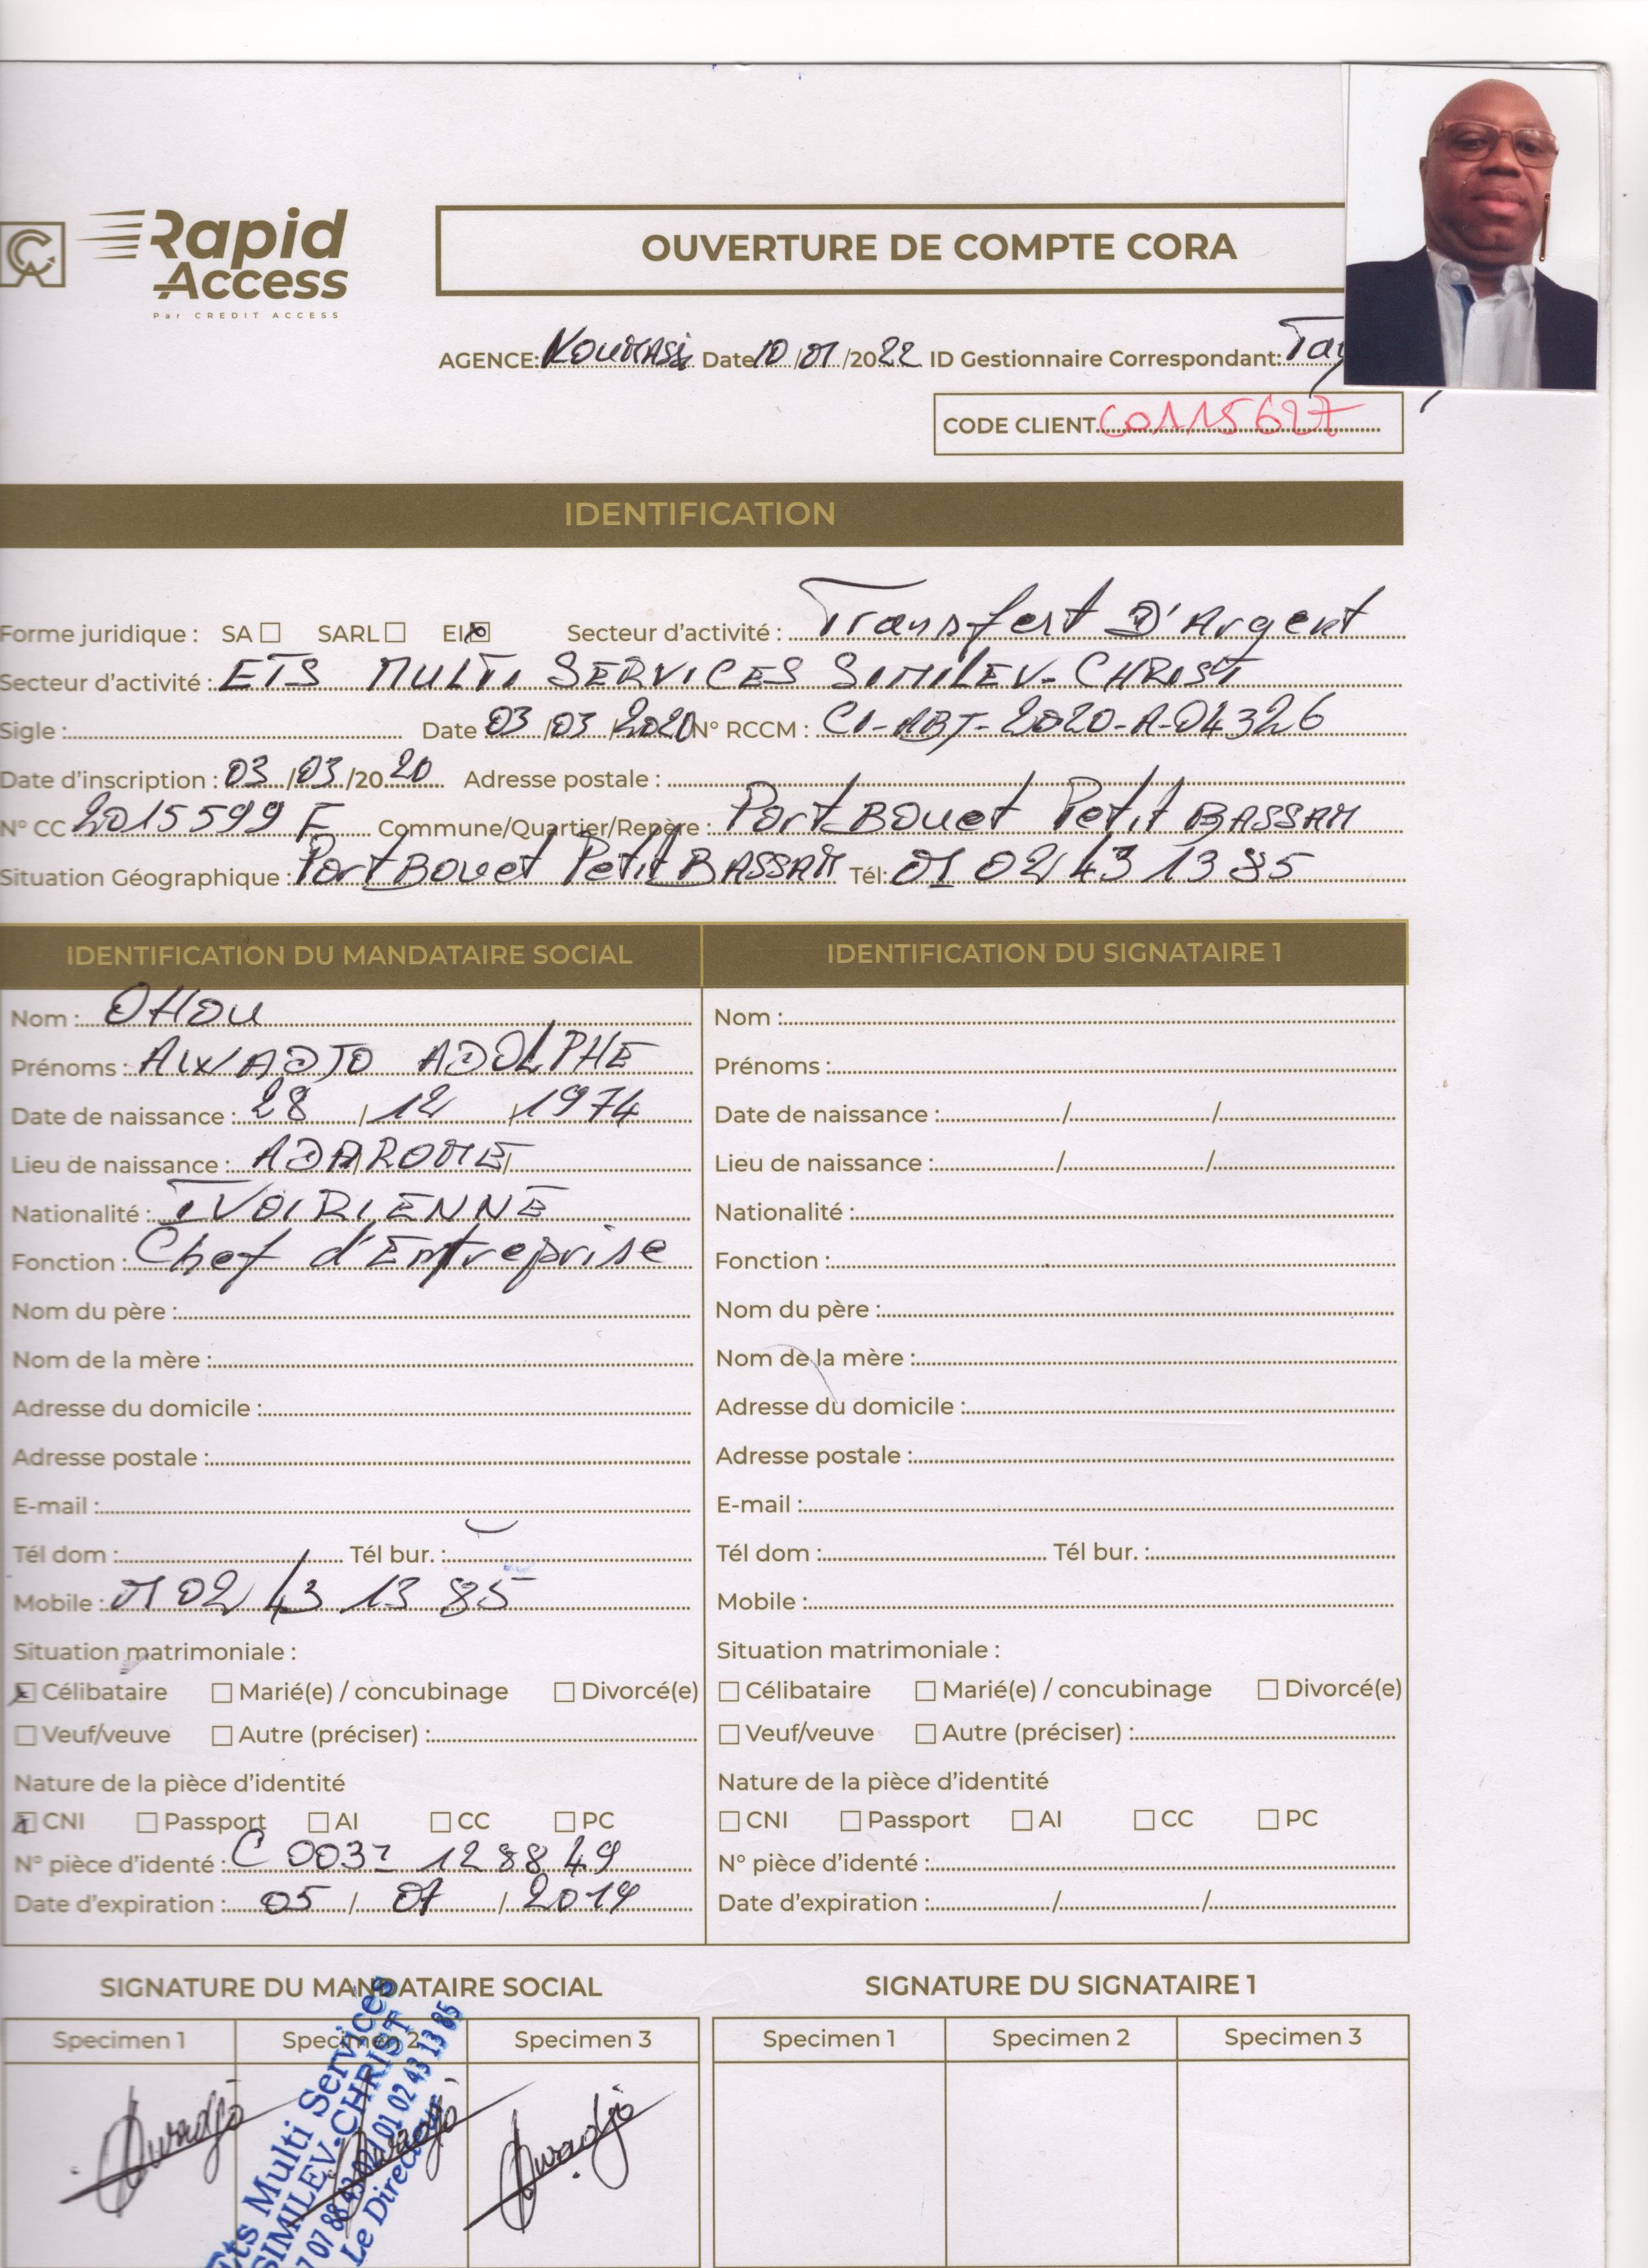 Rapid
Access
Par CREDIT ACCESS
OUVERTURE DE COMPTE CORA
AGENCE: KOUMASSI Date 10/01/2022 ID Gestionnaire Correspondant:
CODE CLIENT C0115627
IDENTIFICATION
Forme juridique : SA SARL EI Secteur d'activité : Transfert D'Argent
Secteur d'activité : ETS MULTI SERVICES SIMILEV-CHRIST
Sigle : Date 03/03/2020 N° RCCM : CI-ABJ-2020-A-04326
Date d'inscription : 03/03/2020 Adresse postale :
N° CC 2015599 F Commune/Quartier/Repère : Port Bouet Petit BASSAM
Situation Géographique : Port Bouet Petit BASSAM Tél: 01 02 43 13 85
IDENTIFICATION DU MANDATAIRE SOCIAL
Nom : OHOU
Prénoms : ADOLPHE
Date de naissance : 28/12/1974
Lieu de naissance :
Nationalité : IVOIRIENNE
Fonction : Chef d'Entreprise
Nom du père :
Nom de la mère :
Adresse du domicile :
Adresse postale :
E-mail :
Tél dom : Tél bur. :
Mobile : 01 02 43 13 85
Situation matrimoniale :
Célibataire Marié(e) / concubinage Divorcé(e)
Veuf/veuve Autre (préciser) :
Nature de la pièce d'identité
CNI Passport AI CC PC
N° pièce d'identé : C 128849
Date d'expiration : 05 /
SIGNATURE DU MANDATAIRE SOCIAL
Specimen 1 Specimen 2 Specimen 3
Ets Multi Services
SIMILEV-CHRIST
01 02 43 13 85
Le Directeur
IDENTIFICATION DU SIGNATAIRE 1
Nom :
Prénoms :
Date de naissance : / /
Lieu de naissance : / /
Nationalité :
Fonction :
Nom du père :
Nom de la mère :
Adresse du domicile :
Adresse postale :
E-mail :
Tél dom : Tél bur. :
Mobile :
Situation matrimoniale :
Célibataire Marié(e) / concubinage Divorcé(e)
Veuf/veuve Autre (préciser) :
Nature de la pièce d'identité
CNI Passport AI CC PC
N° pièce d'identé :
Date d'expiration : / /
SIGNATURE DU SIGNATAIRE 1
Specimen 1 Specimen 2 Specimen 3